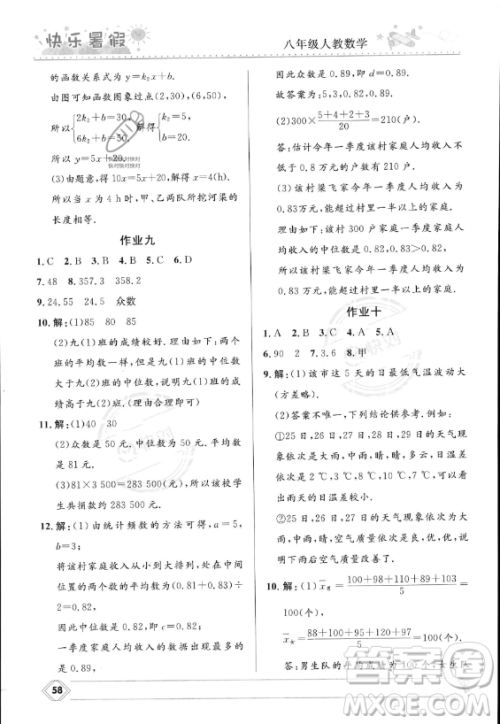 快乐暑假
八年级人教数学
的函数关系式为 y=k₂x+b.
由图可知函数图象过点(2,30),(6,50),
所以{2k₂+b=30, 6k₂+b=50. 解得{k₂=5, b=20.
所以 y=5x+20.
(3)由题意,得10x=5x+20,解得x=4(h).
所以当 x 为 4 h 时,甲、乙两队所挖河渠的
长度相等.
作业九
1.C 2.B 3.C 4.B 5.C 6.D
7.48 8.357.3 358.2
9.24.55 24.5 众数
10.解:(1)85 85 80
(2)九(1)班的成绩较好.因为这两个
班的平均数一样,但九(1)班的中位数
大于九(2)班的中位数,说明九(1)班
成绩更好.(理由合理即可)
11.解:(1)40 30
(2)众数是50元,中位数是50元,平均数
是81元.
(3)81×3 500=283 500(元),故该校
学生共捐款约283 500元.
12.解:(1)由统计频数的方法可得,a=5,
b=3;
将该村家庭收入从小到大排列,
因此中位数为(0.81+0.83)
÷2=0.82,
一季度家庭人均收入的数据出现最多的
是0.89,
因此众数是0.89,即d=0.89,
故答案为:5,3,0.82,0.89.
(2)300×(5+4+2+3)/20=210(户).
答:估计今年一季度该村家庭人均收入不
低于0.8万元的户数有210户.
(3)该村梁飞家今年一季度人均收入为
0.83万元,能超过村里一半以上的家庭.
理由:该村300户家庭一季度家庭人
均收入的中位数是0.82,0.83>0.82,
所以该村梁飞家今年一季度人均收入为
0.83万元,能超过村里一半以上的
家庭.
作业十
1.A 2.B 3.C 4.C 5.D
6.90 2 7.3.6 8.甲
9.解:(1)该市这5天的日最低气温波动大
(方差略).
(2)答案不唯一,以下结论供参考.如:
①25日、26日、27日、28日、29日的天气
现象依次为大雨,中雨,晴,晴,多云,日
温差依次为2℃,8℃,7℃,8℃,7℃,
可以看出雨天的日温差较小.
②25日、26日、27日的天气现象依次为
大雨、中雨、晴,空气质量依次为良、优、
优,说明下雨后空气质量改善了.
10.解:(1)x̄男=(100+98+110+89+103)/5=
100(个),
x̄女=(88+100+95+119+97)/5=100(个).
答:男生队的平均成绩是
58